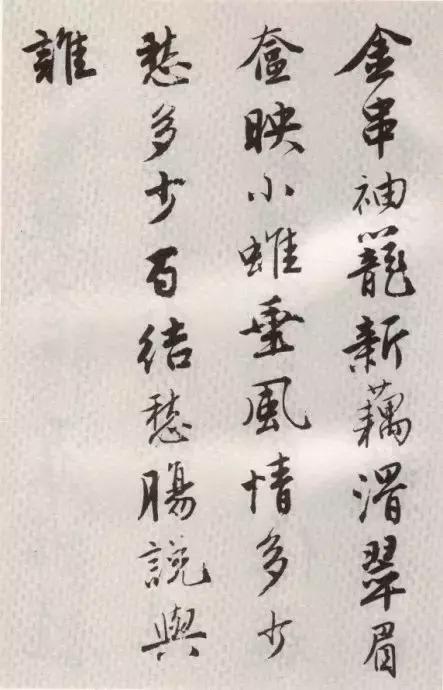 金串袖籠新藕滑翠眉
奩映小蛾垂風情多少
愁多少百結愁腸説與
誰